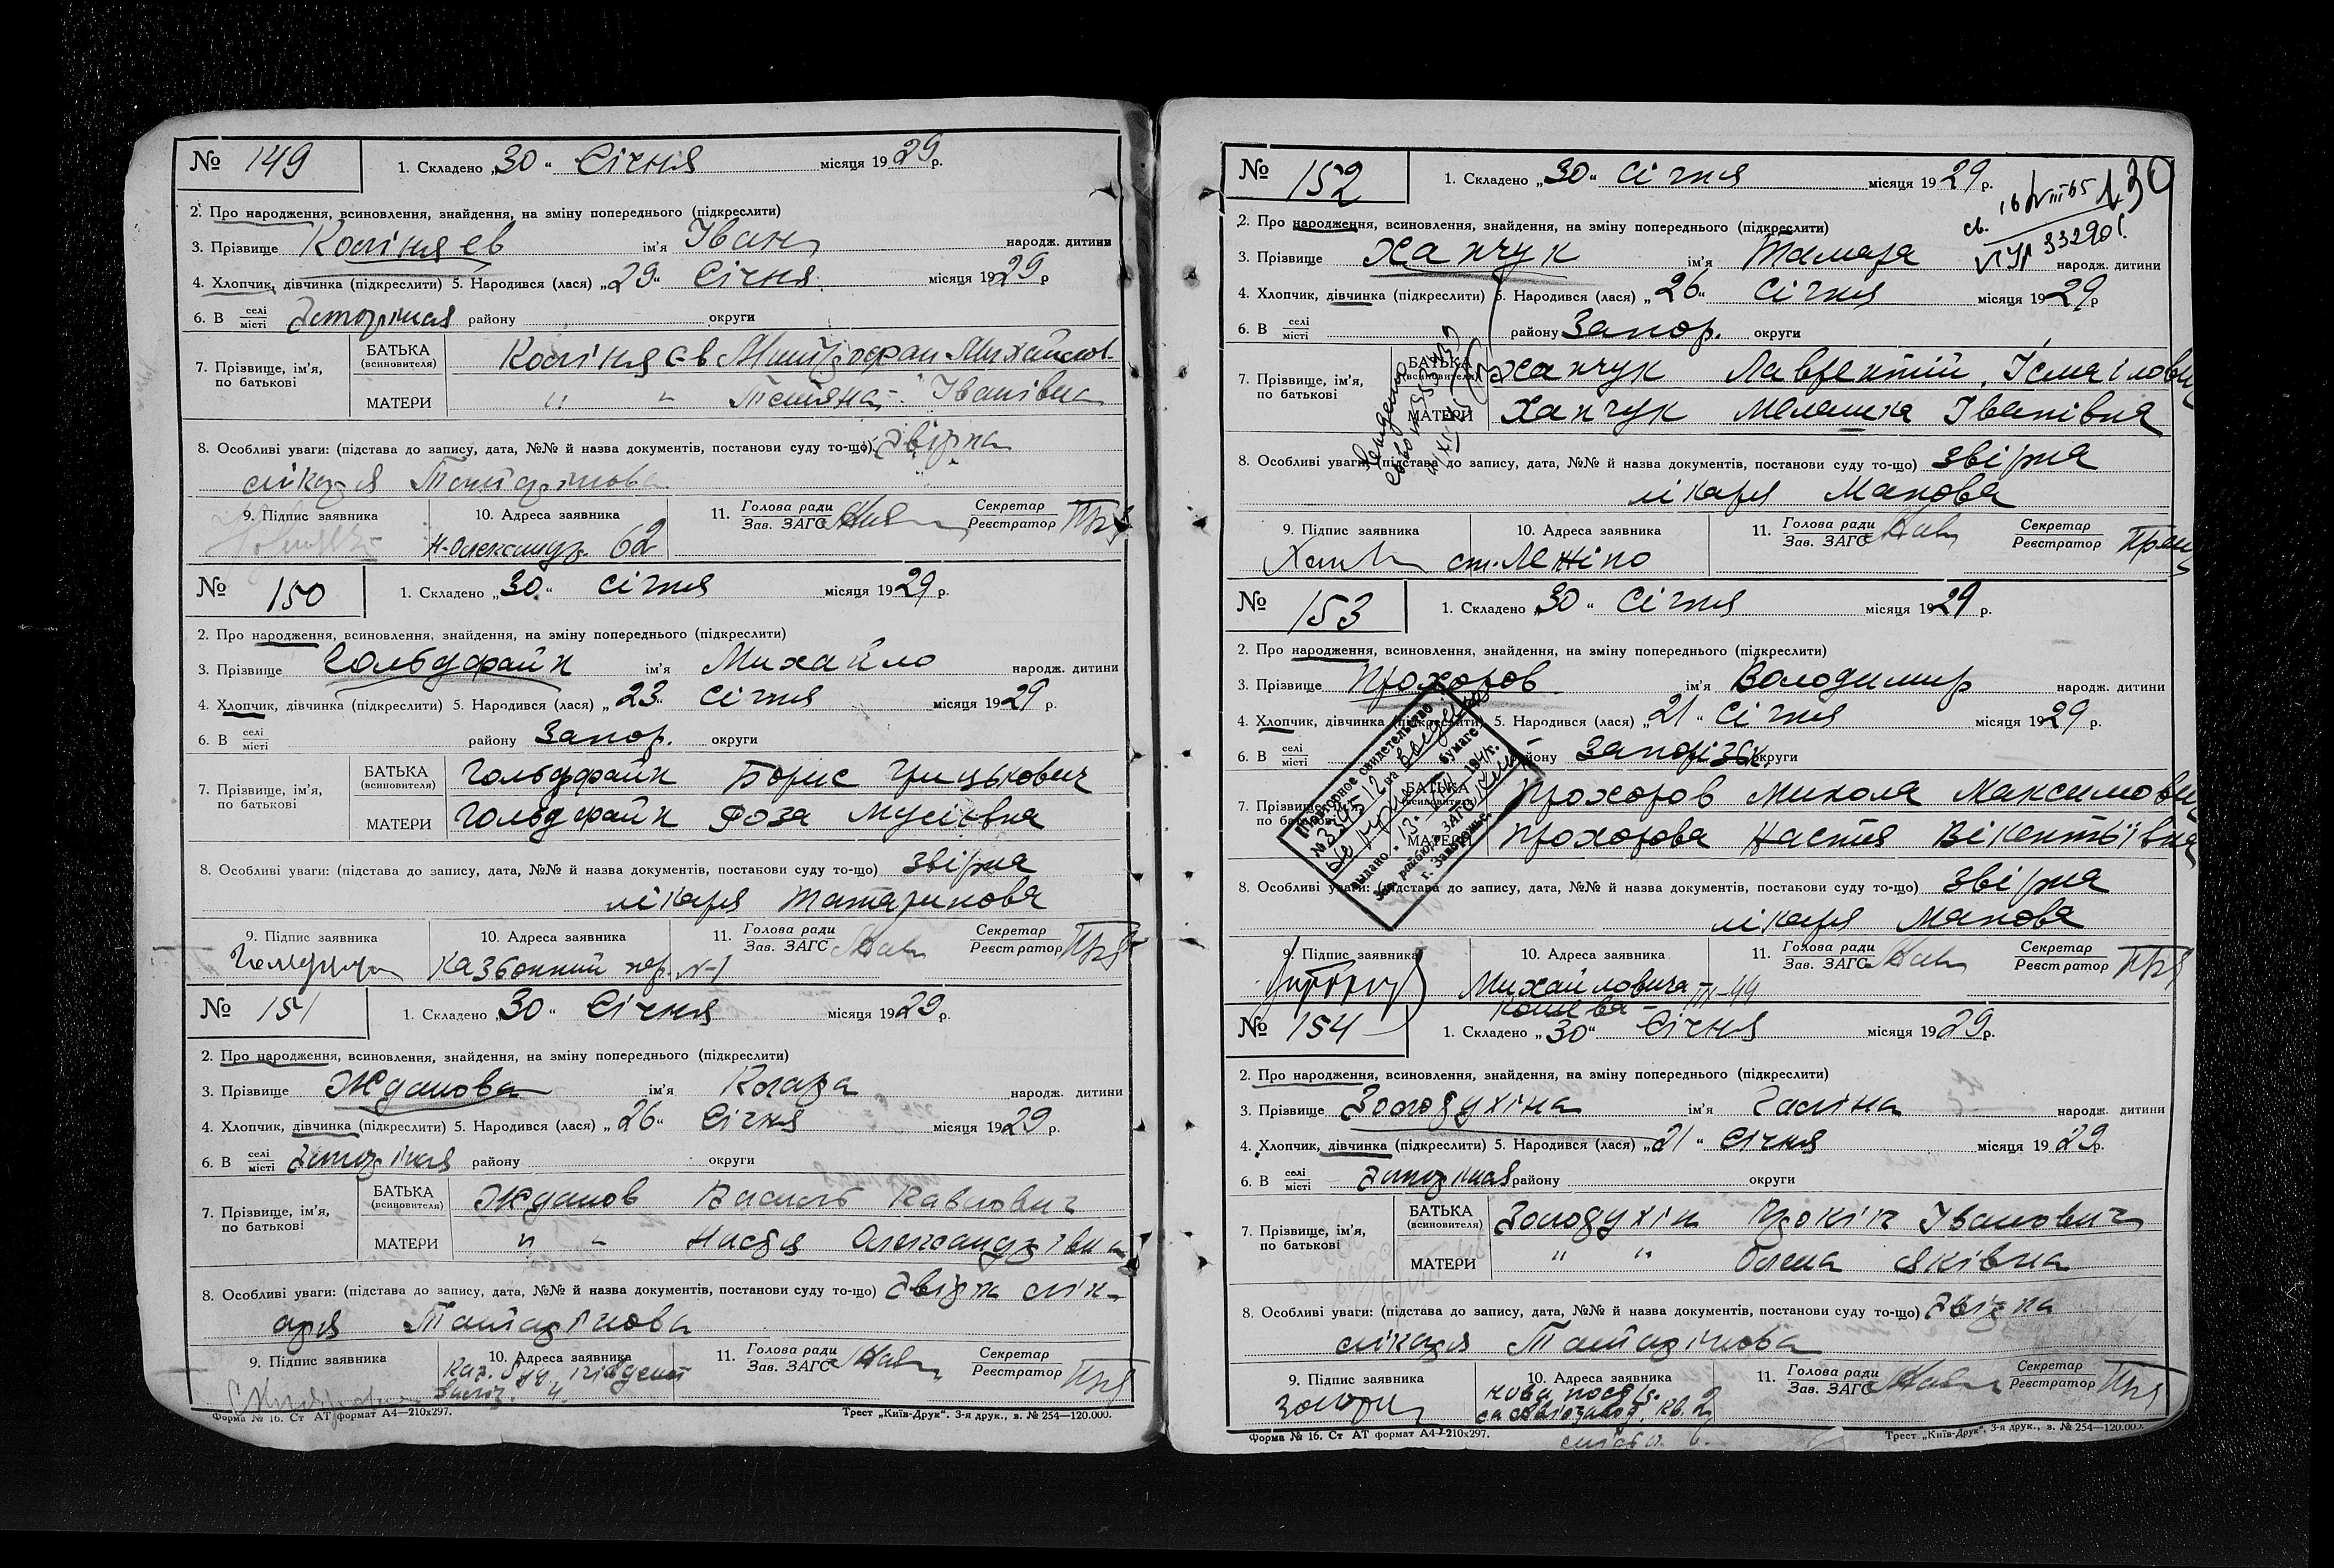 № 149 1. Складено „30“ Січня місяця 1929 р.
2. Про народження, всиновлення, знайдення, на зміну попереднього (підкреслити)
3. Прізвище Каліняєв ім'я Іван народж. дитини
4. Хлопчик, дівчинка (підкреслити) 5. Народився (лася) „29“ Січня місяця 1929 р
6. В селі місті району округи
7. Прізвище, ім'я, по батькові БАТЬКА (всиновителя) Каліняєв Митрофан Михайлов.
МАТЕРИ " " Тетяна Іванівна
8. Особливі уваги: (підстава до запису, дата, №№ й назва документів, постанови суду то-що)
лікаря Татарінова
9. Підпис заявника 10. Адреса заявника 11. Голова ради Зав. ЗАГС Секретар Реєстратор
Н-Олександр. 62
№ 150 1. Складено „30“ січня місяця 1929 р.
2. Про народження, всиновлення, знайдення, на зміну попереднього (підкреслити)
3. Прізвище Гольдфайн ім'я Михайло народж. дитини
4. Хлопчик, дівчинка (підкреслити) 5. Народився (лася) „23“ січня місяця 1929 р.
6. В селі місті району Запор. округи
7. Прізвище, ім'я, по батькові БАТЬКА (всиновителя) Гольдфайн Борис Грицькович
МАТЕРИ Гольдфайн Роза Мусіевна
8. Особливі уваги: (підстава до запису, дата, №№ й назва документів, постанови суду то-що) звірна
лікаря Татаринова
9. Підпис заявника 10. Адреса заявника 11. Голова ради Зав. ЗАГС Секретар Реєстратор
пер. N-1
№ 151 1. Складено „30“ Січня місяця 1929 р.
2. Про народження, всиновлення, знайдення, на зміну попереднього (підкреслити)
3. Прізвище Жданова ім'я Клара народж. дитини
4. Хлопчик, дівчинка (підкреслити) 5. Народився (лася) „26“ Січня місяця 1929 р.
6. В селі місті району округи
7. Прізвище, ім'я, по батькові БАТЬКА (всиновителя) Жданов Василь Павлович
МАТЕРИ " " Надя Олександрівна
8. Особливі уваги: (підстава до запису, дата, №№ й назва документів, постанови суду то-що) лік-
аря Татарінова
9. Підпис заявника 10. Адреса заявника 11. Голова ради Зав. ЗАГС Секретар Реєстратор
Форма № 16. Ст АТ формат А4—210х297. Трест „Київ-Друк“. 3-я друк., в. № 254—120.000.
130
св. 16/VIII 65
33290
№ 152 1. Складено „30“ січня місяця 1929 р.
2. Про народження, всиновлення, знайдення, на зміну попереднього (підкреслити)
3. Прізвище Ханчук ім'я Тамара народж. дитини
4. Хлопчик, дівчинка (підкреслити) 5. Народився (лася) „26“ січня місяця 1929 р
6. В селі місті району Запор. округи
7. Прізвище, ім'я, по батькові БАТЬКА (всиновителя) Ханчук Лаврентій Ісмаілович
МАТЕРИ Ханчук Мелашка Іванівна
8. Особливі уваги: (підстава до запису, дата, №№ й назва документів, постанови суду то-що) звірна
лікаря Манова
9. Підпис заявника 10. Адреса заявника 11. Голова ради Зав. ЗАГС Секретар Реєстратор
ст. Леніно
№ 153 1. Складено „30“ Січня місяця 1929 р.
2. Про народження, всиновлення, знайдення, на зміну попереднього (підкреслити)
3. Прізвище Прохоров ім'я Володимир народж. дитини
4. Хлопчик, дівчинка (підкреслити) 5. Народився (лася) „21“ Січня місяця 1929 р.
6. В селі місті району Запорізьк. округи
7. Прізвище, ім'я, по батькові БАТЬКА (всиновителя) Прохоров Микола Максимович
МАТЕРИ Прохорова Настя Вікентьівна
Повторное свидетельство
на бумаге
выдано 13 VIII 1941 г.
Зав. райбюро ЗАГС
г. Запорожье.
8. Особливі уваги: (підстава до запису, дата, №№ й назва документів, постанови суду то-що) звірна
лікаря Манова
9. Підпис заявника 10. Адреса заявника 11. Голова ради Зав. ЗАГС Секретар Реєстратор
Михайловича
№ 154 1. Складено „30“ Січня місяця 1929 р.
2. Про народження, всиновлення, знайдення, на зміну попереднього (підкреслити)
3. Прізвище Золодухіна ім'я Галіна народж. дитини
4. Хлопчик, дівчинка (підкреслити) 5. Народився (лася) „21“ Січня місяця 1929 р.
6. В селі місті району округи
7. Прізвище, ім'я, по батькові БАТЬКА (всиновителя) Золодухін Іванович
МАТЕРИ " " Олена Яківна
8. Особливі уваги: (підстава до запису, дата, №№ й назва документів, постанови суду то-що)
лікаря Татарінова
9. Підпис заявника 10. Адреса заявника 11. Голова ради Зав. ЗАГС Секретар Реєстратор
кв. 2
Форма № 16. Ст АТ формат А4—210х297. Трест „Київ-Друк“. 3-я друк., в. № 254—120.000.